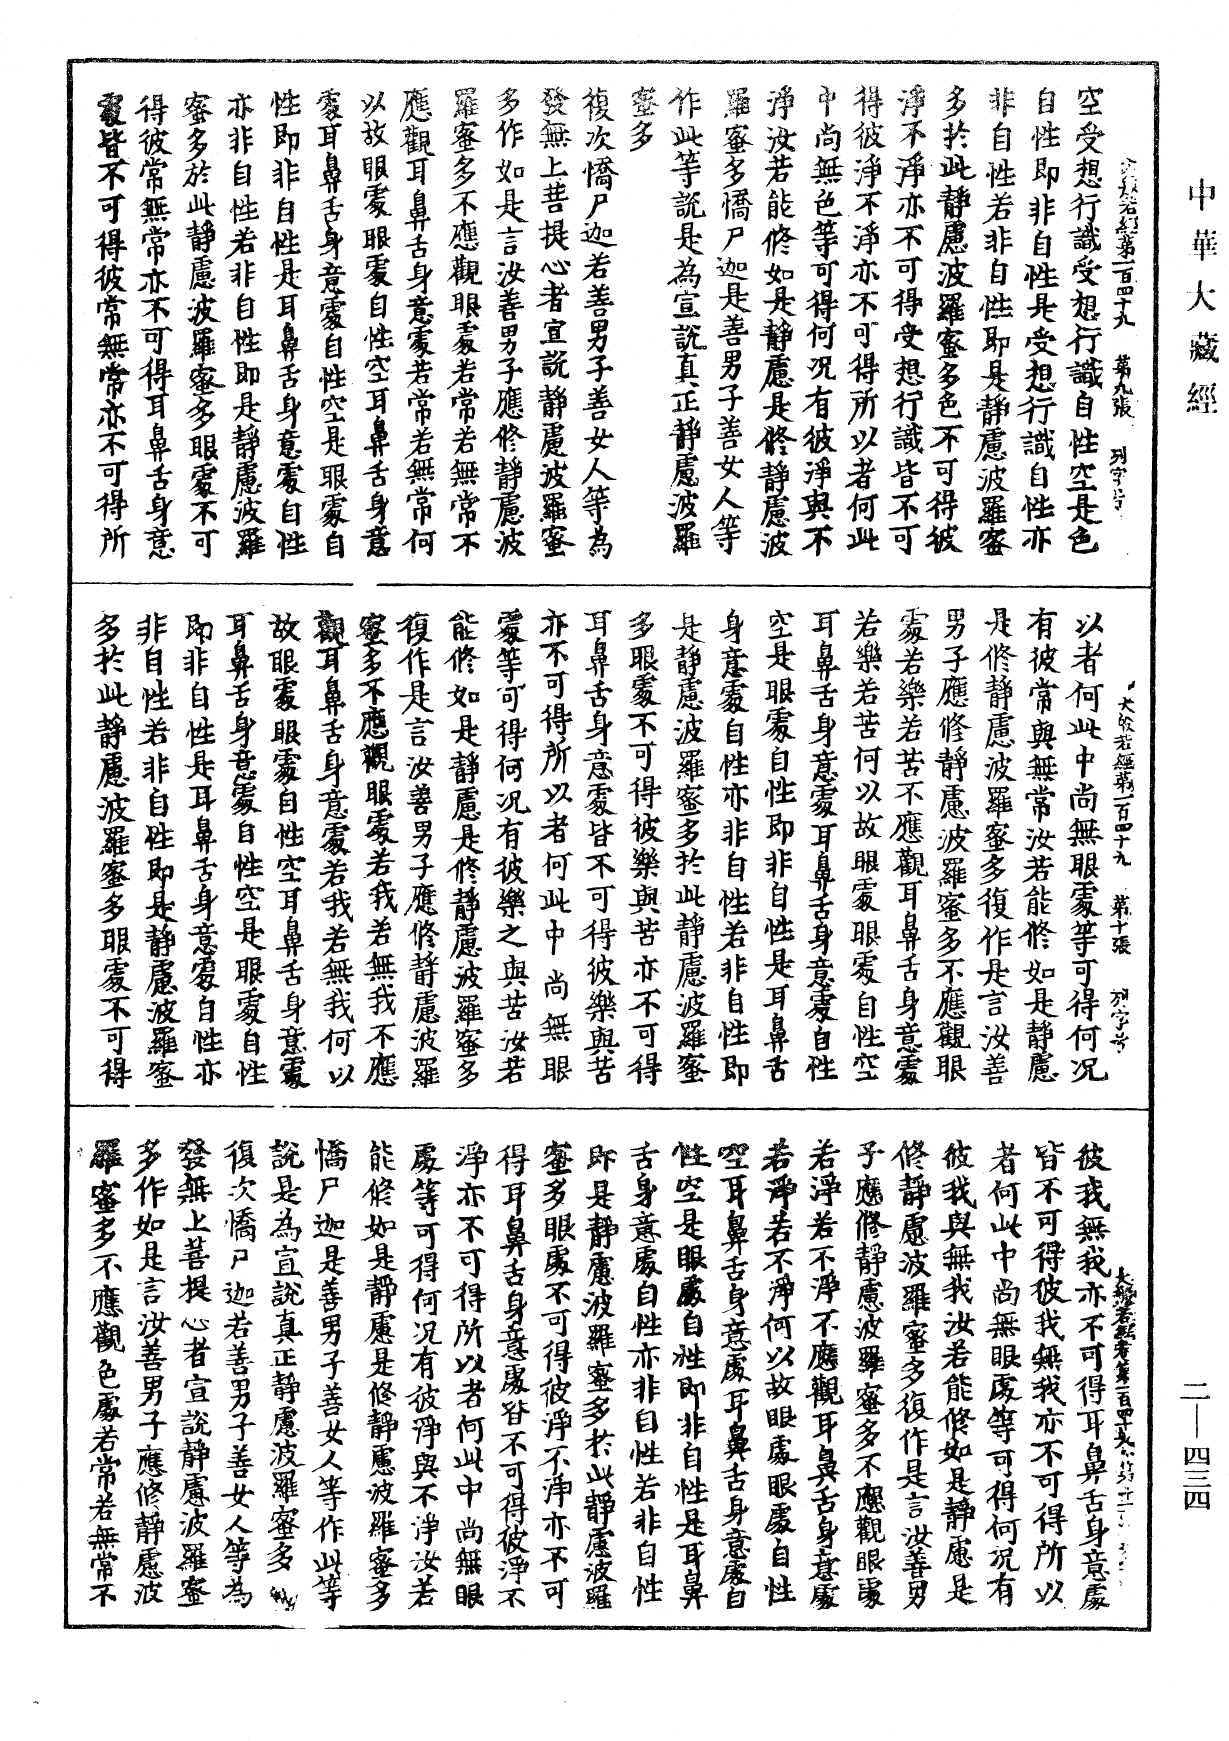 中華大藏經
大般若經第一百四十九 第九張 列字号
空受想行識受想行識自性空是色
自性即非自性是受想行識自性亦
非自性若非自性即是靜慮波羅蜜
多於此靜慮波羅蜜多色不可得彼
淨不淨亦不可得受想行識皆不可
得彼淨不淨亦不可得所以者何此
中尚無色等可得何況有彼淨與不
淨汝若能修如是靜慮是修靜慮波
羅蜜多憍尸迦是善男子善女人等
作此等說是為宣說真正靜慮波羅
蜜多
復次憍尸迦若善男子善女人等為
發無上菩提心者宣說靜慮波羅蜜
多作如是言汝善男子應修靜慮波
羅蜜多不應觀眼處若常若無常不
應觀耳鼻舌身意處若常若無常何
以故眼處眼處自性空耳鼻舌身意
處耳鼻舌身意處自性空是眼處自
性即非自性是耳鼻舌身意處自性
亦非自性若非自性即是靜慮波羅
蜜多於此靜慮波羅蜜多眼處不可
得彼常無常亦不可得耳鼻舌身意
處皆不可得彼常無常亦不可得所
大般若經第一百四十九 第十張 列字号
以者何此中尚無眼處等可得何況
有彼常與無常汝若能修如是靜慮
是修靜慮波羅蜜多復作是言汝善
男子應修靜慮波羅蜜多不應觀眼
處若樂若苦不應觀耳鼻舌身意處
若樂若苦何以故眼處眼處自性空
耳鼻舌身意處耳鼻舌身意處自性
空是眼處自性即非自性是耳鼻舌
身意處自性亦非自性若非自性即
是靜慮波羅蜜多於此靜慮波羅蜜
多眼處不可得彼樂與苦亦不可得
耳鼻舌身意處皆不可得彼樂與苦
亦不可得所以者何此中尚無眼
處等可得何況有彼樂之與苦汝若
能修如是靜慮是修靜慮波羅蜜多
復作是言汝善男子應修靜慮波羅
蜜多不應觀眼處若我若無我不應
觀耳鼻舌身意處若我若無我何以
故眼處眼處自性空耳鼻舌身意處
耳鼻舌身意處自性空是眼處自性
即非自性是耳鼻舌身意處自性亦
非自性若非自性即是靜慮波羅蜜
多於此靜慮波羅蜜多眼處不可得
大般若經卷第一百四十九
彼我無我亦不可得耳鼻舌身意處
皆不可得彼我無我亦不可得所以
者何此中尚無眼處等可得何況有
彼我與無我汝若能修如是靜慮是
修靜慮波羅蜜多復作是言汝善男
子應修靜慮波羅蜜多不應觀眼處
若淨若不淨不應觀耳鼻舌身意處
若淨若不淨何以故眼處眼處自性
空耳鼻舌身意處耳鼻舌身意處自
性空是眼處自性即非自性是耳鼻
舌身意處自性亦非自性若非自性
即是靜慮波羅蜜多於此靜慮波羅
蜜多眼處不可得彼淨不淨亦不可
得耳鼻舌身意處皆不可得彼淨不
淨亦不可得所以者何此中尚無眼
處等可得何況有彼淨與不淨汝若
能修如是靜慮是修靜慮波羅蜜多
憍尸迦是善男子善女人等作此等
說是為宣說真正靜慮波羅蜜多
復次憍尸迦若善男子善女人等為
發無上菩提心者宣說靜慮波羅蜜
多作如是言汝善男子應修靜慮波
羅蜜多不應觀色處若常若無常不
二—四三四